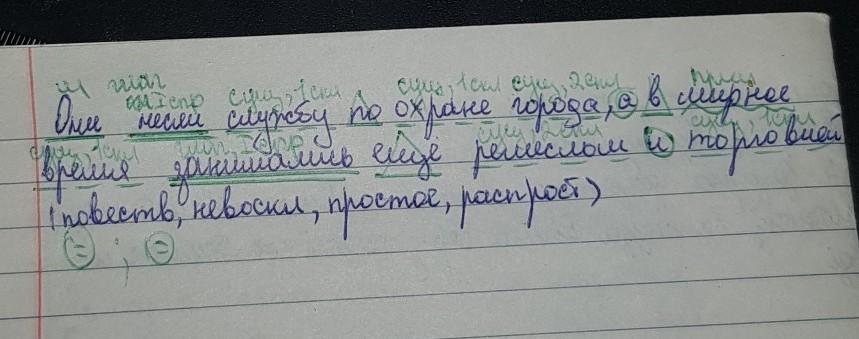 м глаг
Iспр сущ, 1скл сущ, 1скл сущ, 2скл прил
Они несли службу по охране города, а в мирное
сущ, 1скл глаг, Iспр сущ, 2скл сущ, 1скл
время занимались ещё ремеслом и торговлей
(повеств, невоскл, простое, распрост)
= ; =